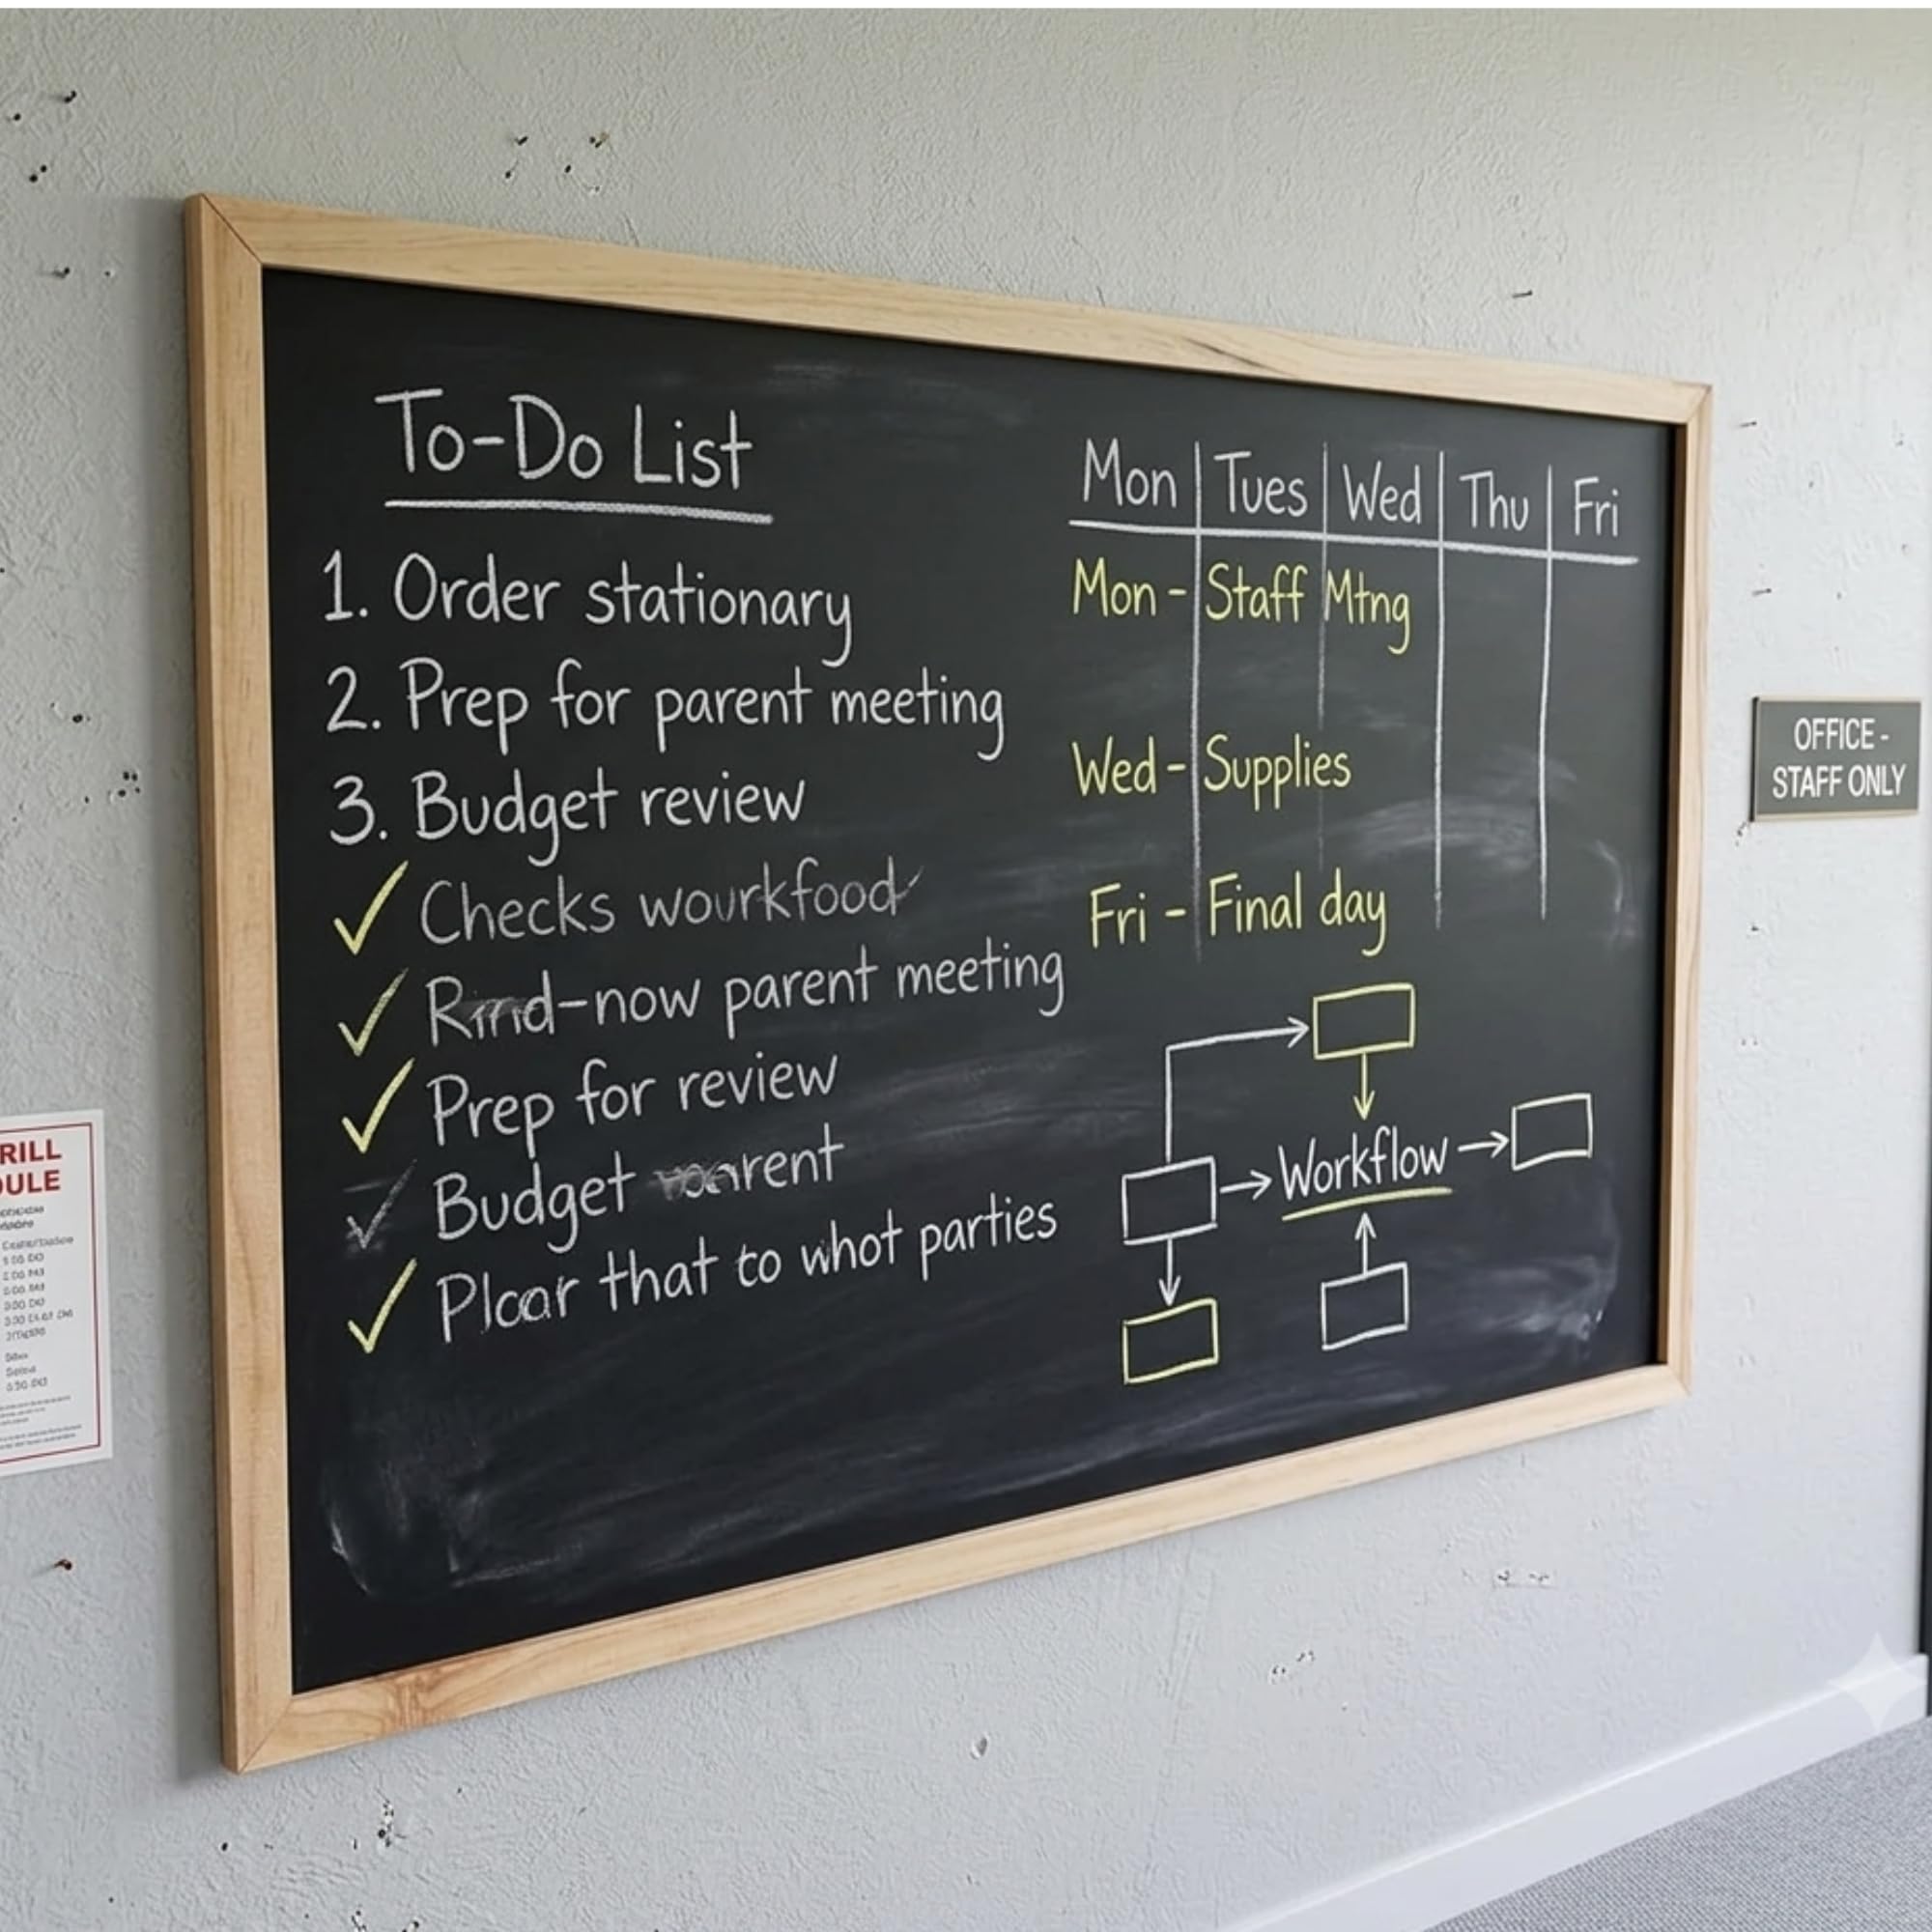 To-Do List
1. Order stationary
2. Prep for parent meeting
3. Budget review
✓ Checks wourkfood
✓ Rind-now parent meeting
✓ Prep for review
✓ Budget
✓ that to whot parties
Mon Tues Wed Thu Fri
Mon - Staff Mtng
Wed - Supplies
Fri - Final day
Workflow
OFFICE -
STAFF ONLY
RILL
ULE